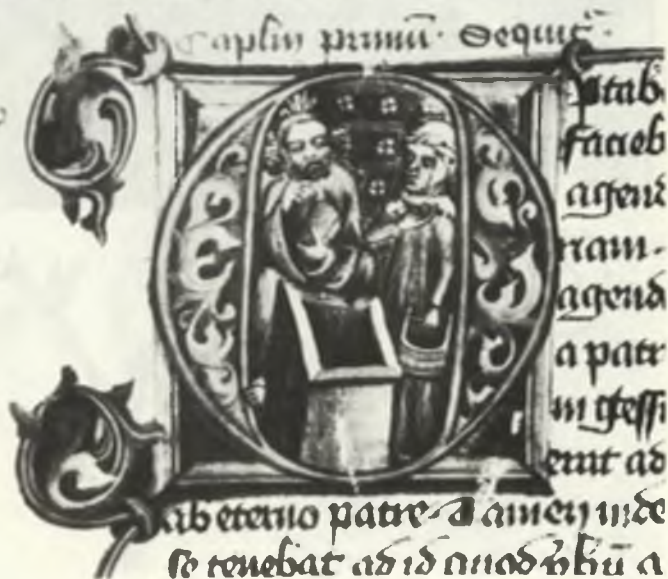 Caplm primu. Sequit.
ptab
facieb
agend
nam.
agend
a patr
in gress
erut ad
ab eterno patre a amen inde
se tenebat ad id quod vbu a